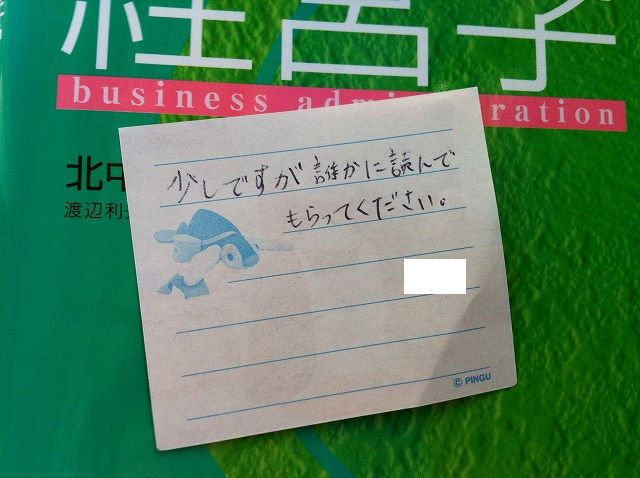 経営学
business admi ration
北中
渡辺利
少しですが誰かに読んで
もらってください。
© PINGU